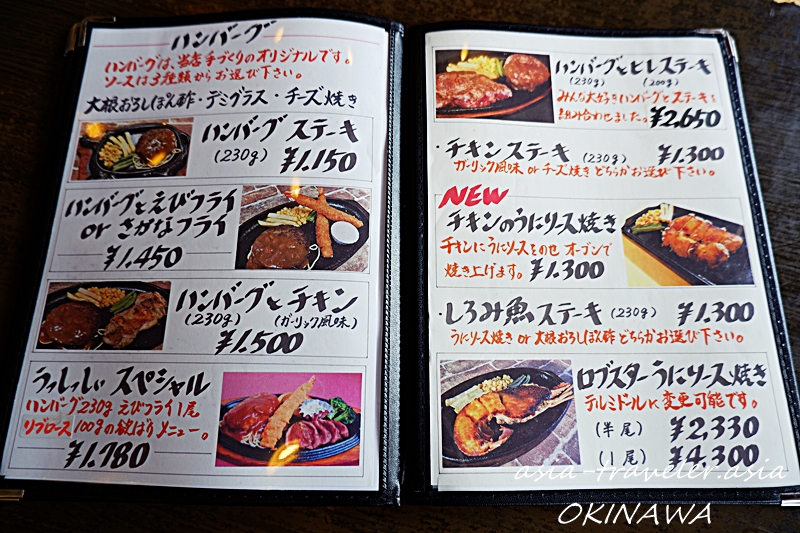 ハンバーグ
ハンバーグは、当店手づくりのオリジナルです。
ソースは3種類からお選び下さい。
大根おろしぽん酢・デミグラス・チーズ焼き
ハンバーグステーキ
(230g) ¥1,150
ハンバーグとえびフライ
or さかなフライ
¥1,450
ハンバーグとチキン
(230g) (ガーリック風味)
¥1,500
うっしっしぃ スペシャル
ハンバーグ230g えびフライ1尾
リブロース100gの欲ばりメニュー。
¥1,780
ハンバーグとヒレステーキ
(230g) (200g)
みんな大好きハンバーグとステーキを
組み合わせました。 ¥2,650
・チキンステーキ (230g) ¥1,300
ガーリック風味 or チーズ焼き どちらかお選び下さい。
NEW
チキンのうにソース焼き
チキンにうにソースをのせ オーブンで
焼き上げます。 ¥1,300
・しろみ魚ステーキ (230g) ¥1,300
うにソース焼き or 大根おろしぽん酢 どちらかお選び下さい。
ロブスターうにソース焼き
テルミドールに変更可能です。
(半尾) ¥2,330
(1尾) ¥4,300
asia-traveler.asia
OKINAWA